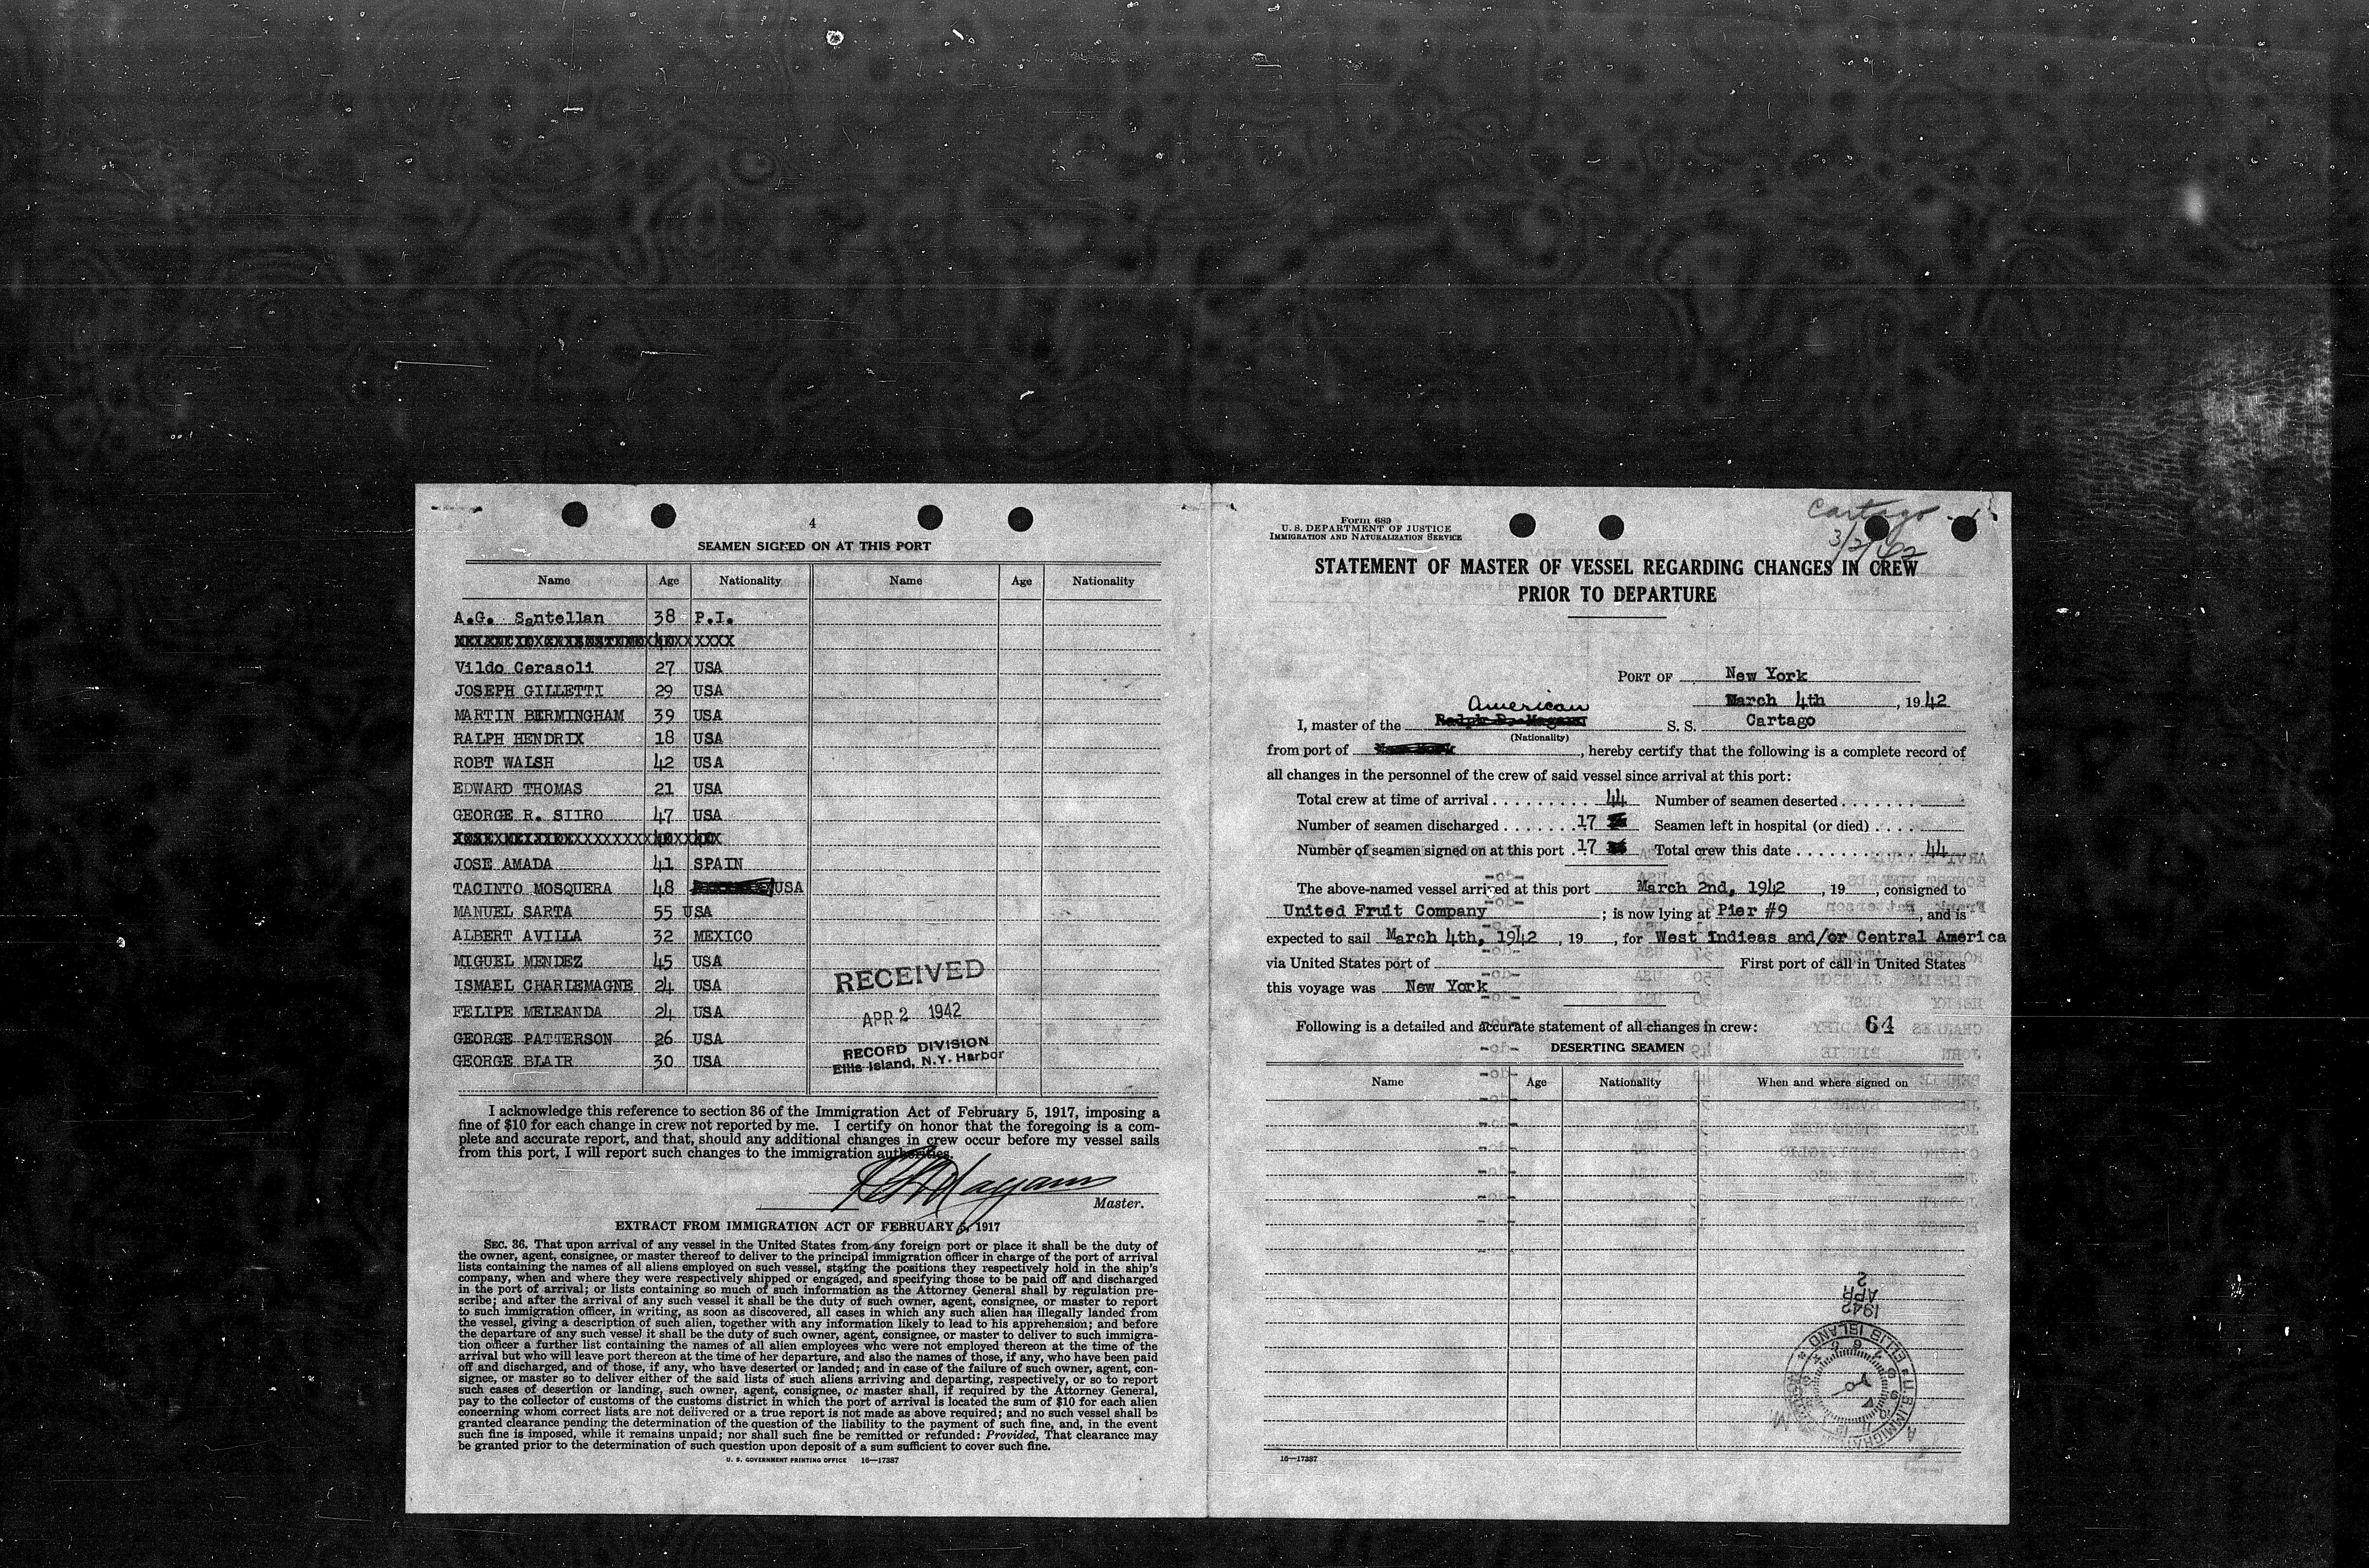 4
SEAMEN SIGNED ON AT THIS PORT
Name Age Nationality Name Age Nationality
A.G. Santellan 38 P.I.
Vildo Cerasoli 27 USA
JOSEPH GILLETTI 29 USA
MARTIN BERMINGHAM 39 USA
RALPH HENDRIX 18 USA
ROBT WALSH 42 USA
EDWARD THOMAS 21 USA
GEORGE R. SIIRO 47 USA
JOSE AMADA 41 SPAIN
TACINTO MOSQUERA 48 USA
MANUEL SARTA 55 USA
ALBERT AVILLA 32 MEXICO
MIGUEL MENDEZ 45 USA
ISMAEL CHARLEMAGNE 24 USA
FELIPE MELEANDA 24 USA
GEORGE PATTERSON 26 USA
GEORGE BLAIR 30 USA
RECEIVED
APR 2 1942
RECORD DIVISION
Ellis Island, N.Y. Harbor
I acknowledge this reference to section 36 of the Immigration Act of February 5, 1917, imposing a
fine of $10 for each change in crew not reported by me. I certify on honor that the foregoing is a com-
plete and accurate report, and that, should any additional changes in crew occur before my vessel sails
from this port, I will report such changes to the immigration authorities.
Master.
EXTRACT FROM IMMIGRATION ACT OF FEBRUARY 5, 1917
SEC. 36. That upon arrival of any vessel in the United States from any foreign port or place it shall be the duty of
the owner, agent, consignee, or master thereof to deliver to the principal immigration officer in charge of the port of arrival
lists containing the names of all aliens employed on such vessel, stating the positions they respectively hold in the ship's
company, when and where they were respectively shipped or engaged, and specifying those to be paid off and discharged
in the port of arrival; or lists containing so much of such information as the Attorney General shall by regulation pre-
scribe; and after the arrival of any such vessel it shall be the duty of such owner, agent, consignee, or master to report
to such immigration officer, in writing, as soon as discovered, all cases in which any such alien has illegally landed from
the vessel, giving a description of such alien, together with any information likely to lead to his apprehension; and before
the departure of any such vessel it shall be the duty of such owner, agent, consignee, or master to deliver to such immigra-
tion officer a further list containing the names of all alien employees who were not employed thereon at the time of the
arrival but who will leave port thereon at the time of her departure, and also the names of those, if any, who have been paid
off and discharged, and of those, if any, who have deserted or landed; and in case of the failure of such owner, agent, con-
signee, or master so to deliver either of the said lists of such aliens arriving and departing, respectively, or so to report
such cases of desertion or landing, such owner, agent, consignee, or master shall, if required by the Attorney General,
pay to the collector of customs of the customs district in which the port of arrival is located the sum of $10 for each alien
concerning whom correct lists are not delivered or a true report is not made as above required; and no such vessel shall be
granted clearance pending the determination of the question of the liability to the payment of such fine, and, in the event
such fine is imposed, while it remains unpaid; nor shall such fine be remitted or refunded: Provided, That clearance may
be granted prior to the determination of such question upon deposit of a sum sufficient to cover such fine.
U. S. GOVERNMENT PRINTING OFFICE 16—17387
Cartago
3/2/42
Form 689
U. S. DEPARTMENT OF JUSTICE
IMMIGRATION AND NATURALIZATION SERVICE
STATEMENT OF MASTER OF VESSEL REGARDING CHANGES IN CREW
PRIOR TO DEPARTURE
PORT OF New York
March 4th, 1942
American
I, master of the Ralph D. Magann S. S. Cartago
(Nationality)
from port of , hereby certify that the following is a complete record of
all changes in the personnel of the crew of said vessel since arrival at this port:
Total crew at time of arrival . . . . . . . . . . 44 Number of seamen deserted . . . . . . . .
Number of seamen discharged . . . . . . . 17 Seamen left in hospital (or died) . . . .
Number of seamen signed on at this port . 17 Total crew this date . . . . . . . . . . . 44
The above-named vessel arrived at this port March 2nd, 1942 , 19 , consigned to
United Fruit Company ; is now lying at Pier #9 , and is
expected to sail March 4th, 1942 , 19 , for West Indieas and/or Central America
via United States port of First port of call in United States
this voyage was New York
Following is a detailed and accurate statement of all changes in crew: 64
DESERTING SEAMEN
Name Age Nationality When and where signed on
1942
APR
2
ELLIS ISLAND
U.S. IMMIGRATION
16—17387